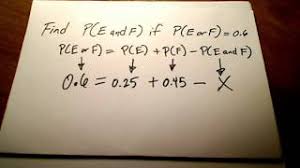 Find P(E and F) if P(E or F) = 0.6
P(E or F) = P(E) + P(F) - P(E and F)
0.6 = 0.25 + 0.45 - X